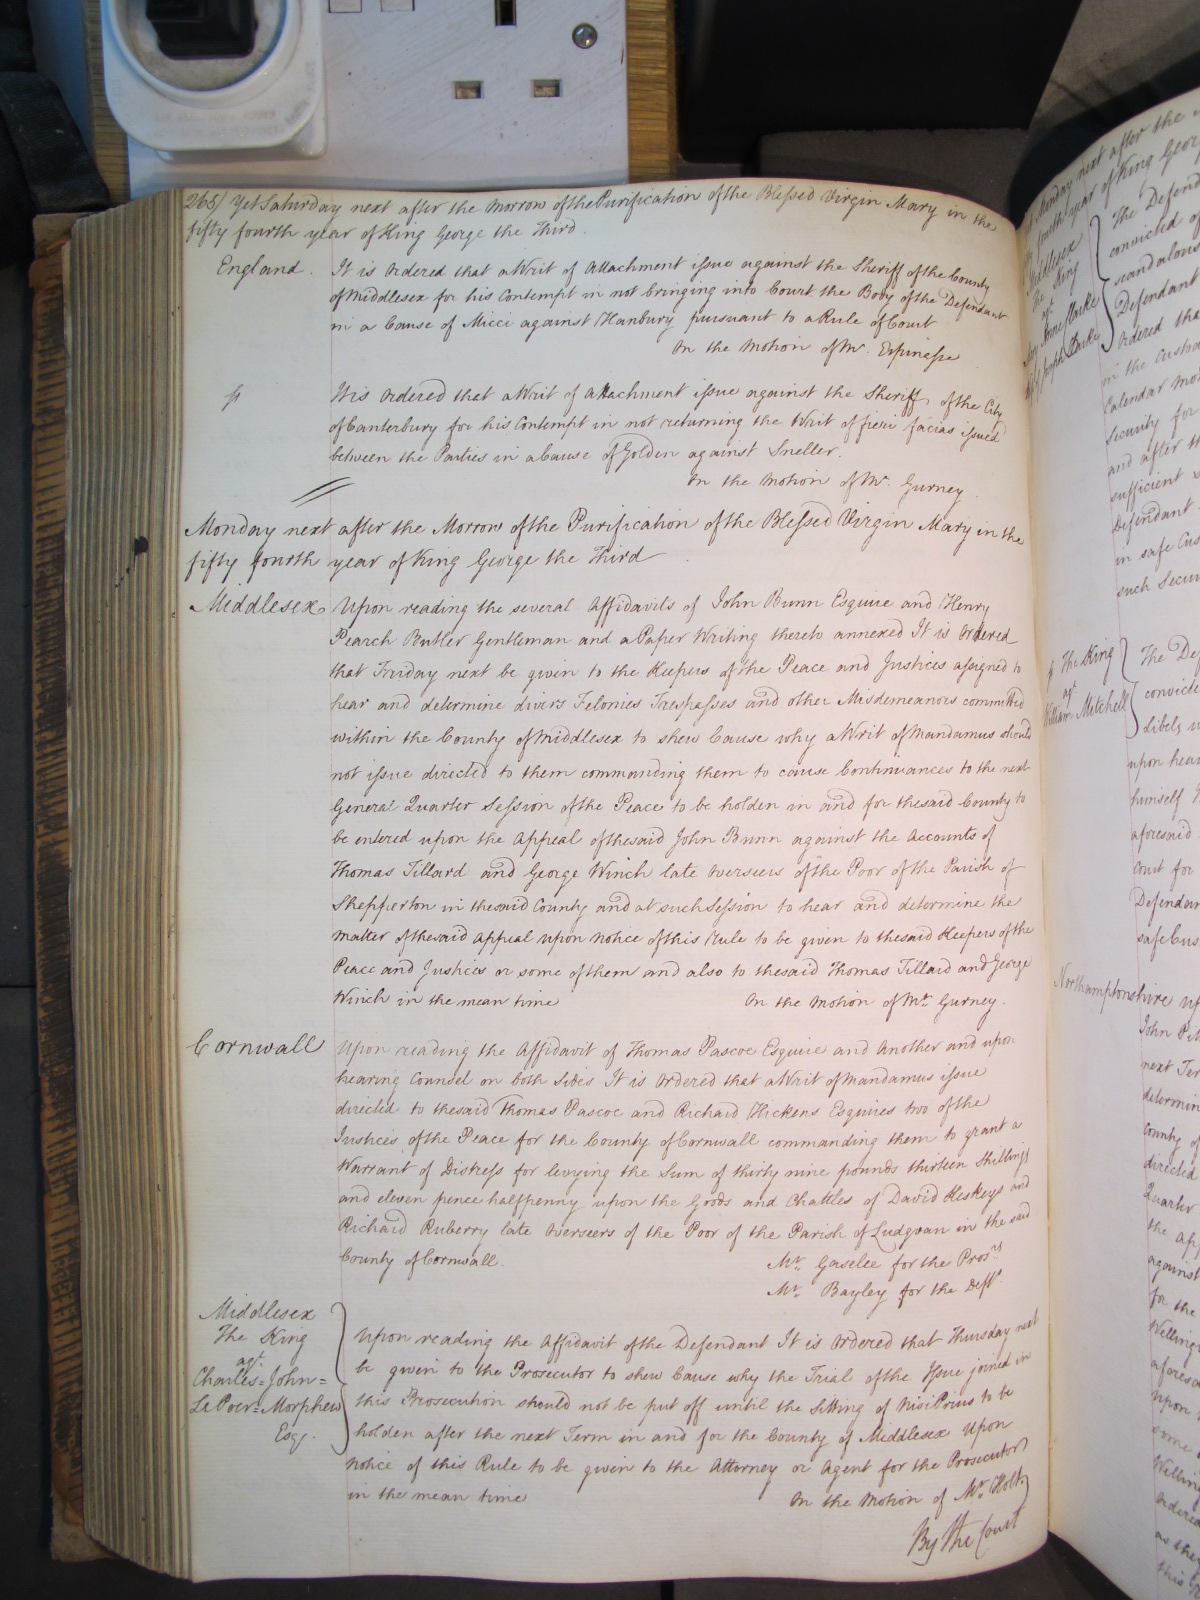 265/ Yet Saturday next after the Morrow of the Purification of the Blessed Virgin Mary in the
fifty fourth year of King George the Third.
England. It is Ordered that a Writ of Attachment issue against the Sheriff of the County
of Middlesex for his Contempt in not bringing into Court the Body of the Defendant
in a Cause of Micci against Hanbury pursuant to a Rule of Court
On the Motion of Mr. Espinasse
It is Ordered that a Writ of Attachment issue against the Sheriff of the City
of Canterbury for his Contempt in not returning the Writ of fieri facias issued
between the Parties in a Cause of Golden against Sneller.
On the Motion of Mr. Gurney.
Monday next after the Morrow of the Purification of the Blessed Virgin Mary in the
fifty fourth year of King George the Third
Middlesex Upon reading the several Affidavits of John Bunn Esquire and Henry
Pearch Butler Gentleman and a Paper Writing thereto annexed It is Ordered
that Friday next be given to the Keepers of the Peace and Justices assigned to
hear and determine divers Felonies Trespasses and other Misdemeanors committed
within the County of Middlesex to shew Cause why a Writ of Mandamus should
not issue directed to them commanding them to cause Continuances to the next
General Quarter Session of the Peace to be holden in and for the said County to
be entered upon the Appeal of the said John Bunn against the Accounts of
Thomas Tillard and George Winch late Overseers of the Poor of the Parish of
Shepperton in the said County and at such Session to hear and determine the
matter of the said Appeal upon Notice of this Rule to be given to the said Keepers of the
Peace and Justices or some of them and also to the said Thomas Tillard and George
Winch in the mean time On the Motion of Mr. Gurney.
Cornwall Upon reading the Affidavit of Thomas Pascoe Esquire and Another and upon
hearing Counsel on both sides It is Ordered that a Writ of Mandamus issue
directed to the said Thomas Pascoe and Richard Hickens Esquires two of the
Justices of the Peace for the County of Cornwall commanding them to grant a
Warrant of Distress for levying the Sum of thirty nine pounds thirteen Shillings
and eleven pence halfpenny upon the Goods and Chattles of David Heskeys and
Richard Ruberry late Overseers of the Poor of the Parish of Ludgvan in the said
County of Cornwall. Mr. Gaselee for the Pros.rs
Mr. Bayley for the Defts.
Middlesex
The King
agt.
Charles=John=
Le Poer=Morphew
Esqr.
Upon reading the Affidavit of the Defendant It is Ordered that Thursday next
be given to the Prosecutor to shew Cause why the Trial of the Issue joined in
this Prosecution should not be put off until the Sitting of Nisi Prius to be
holden after the next Term in and for the County of Middlesex Upon
Notice of this Rule to be given to the Attorney or Agent for the Prosecutor
in the mean time On the Motion of Mr. Holt
By the Court
Monday next after the
year of King George
Middlesex
The King
agt.
The Defend
convicted of
scandalous
Defendant
Ordered tha
in the Custo
Calendar Mon
Security for
and after th
sufficient
Defendant
in safe Cus
such Secur
The King
agt.
William Mitchell
The De
convicte
Libels
upon hear
himself
aforesaid
Court for
Defendan
safe Cus
Northamptonshire up
John Pe
next Ter
determin
County of
directed
Quarter
the App
against
for the
Welling
aforesa
upon
some
Wellin
Ordered
as the
this